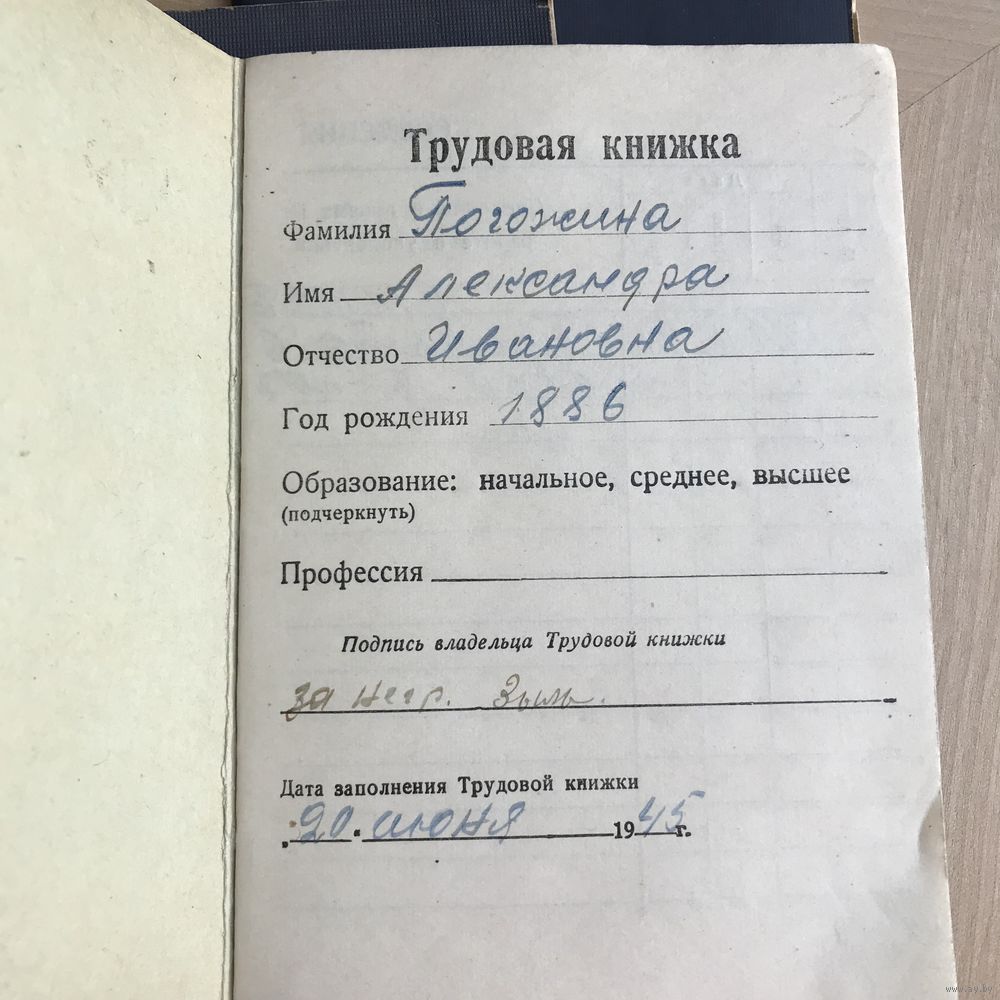 Трудовая книжка
Фамилия Погожина
Имя Александра
Отчество Ивановна
Год рождения 1886
Образование: начальное, среднее, высшее
(подчеркнуть)
Профессия
Подпись владельца Трудовой книжки
за негр. Зыль.
Дата заполнения Трудовой книжки
„20" июня 1945 г.
www.ay.by